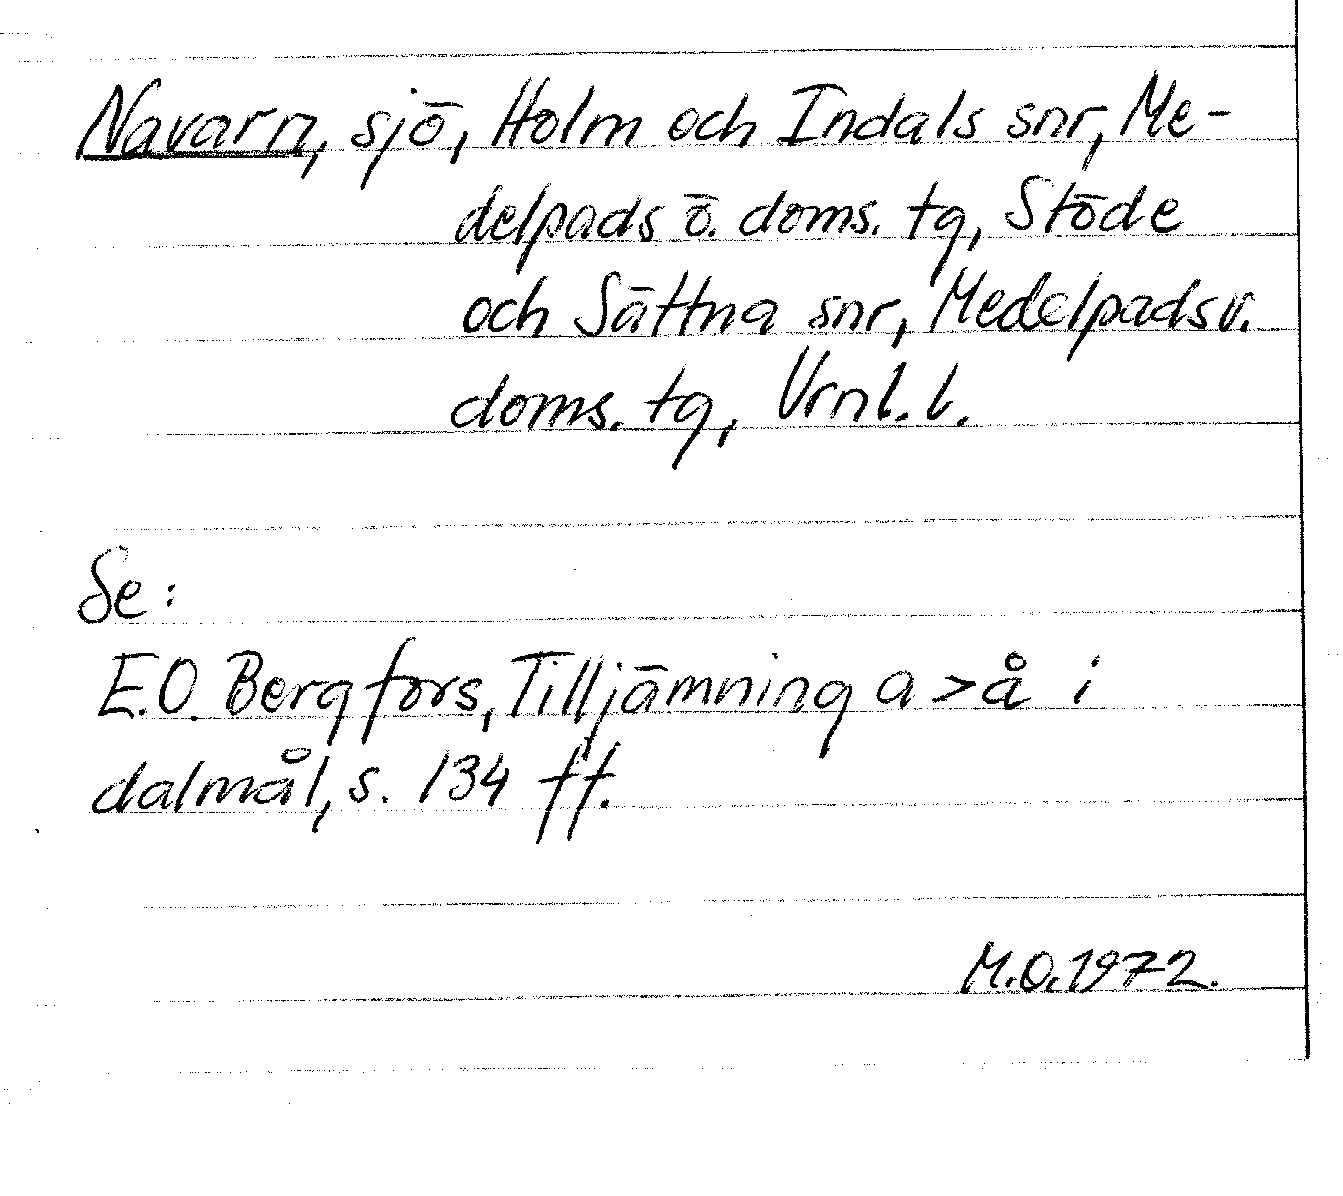 Navarn, sjö, Holm och Indals snr, Me-
delpads ö. doms. tg, Stöde
och Sättna snr, Medelpads v.
doms. tg, Vrnl. l.
Se:
E.O. Bergfors, Tilljämning a > å i
dalmål, s. 134 ff.
M.O. 1972.